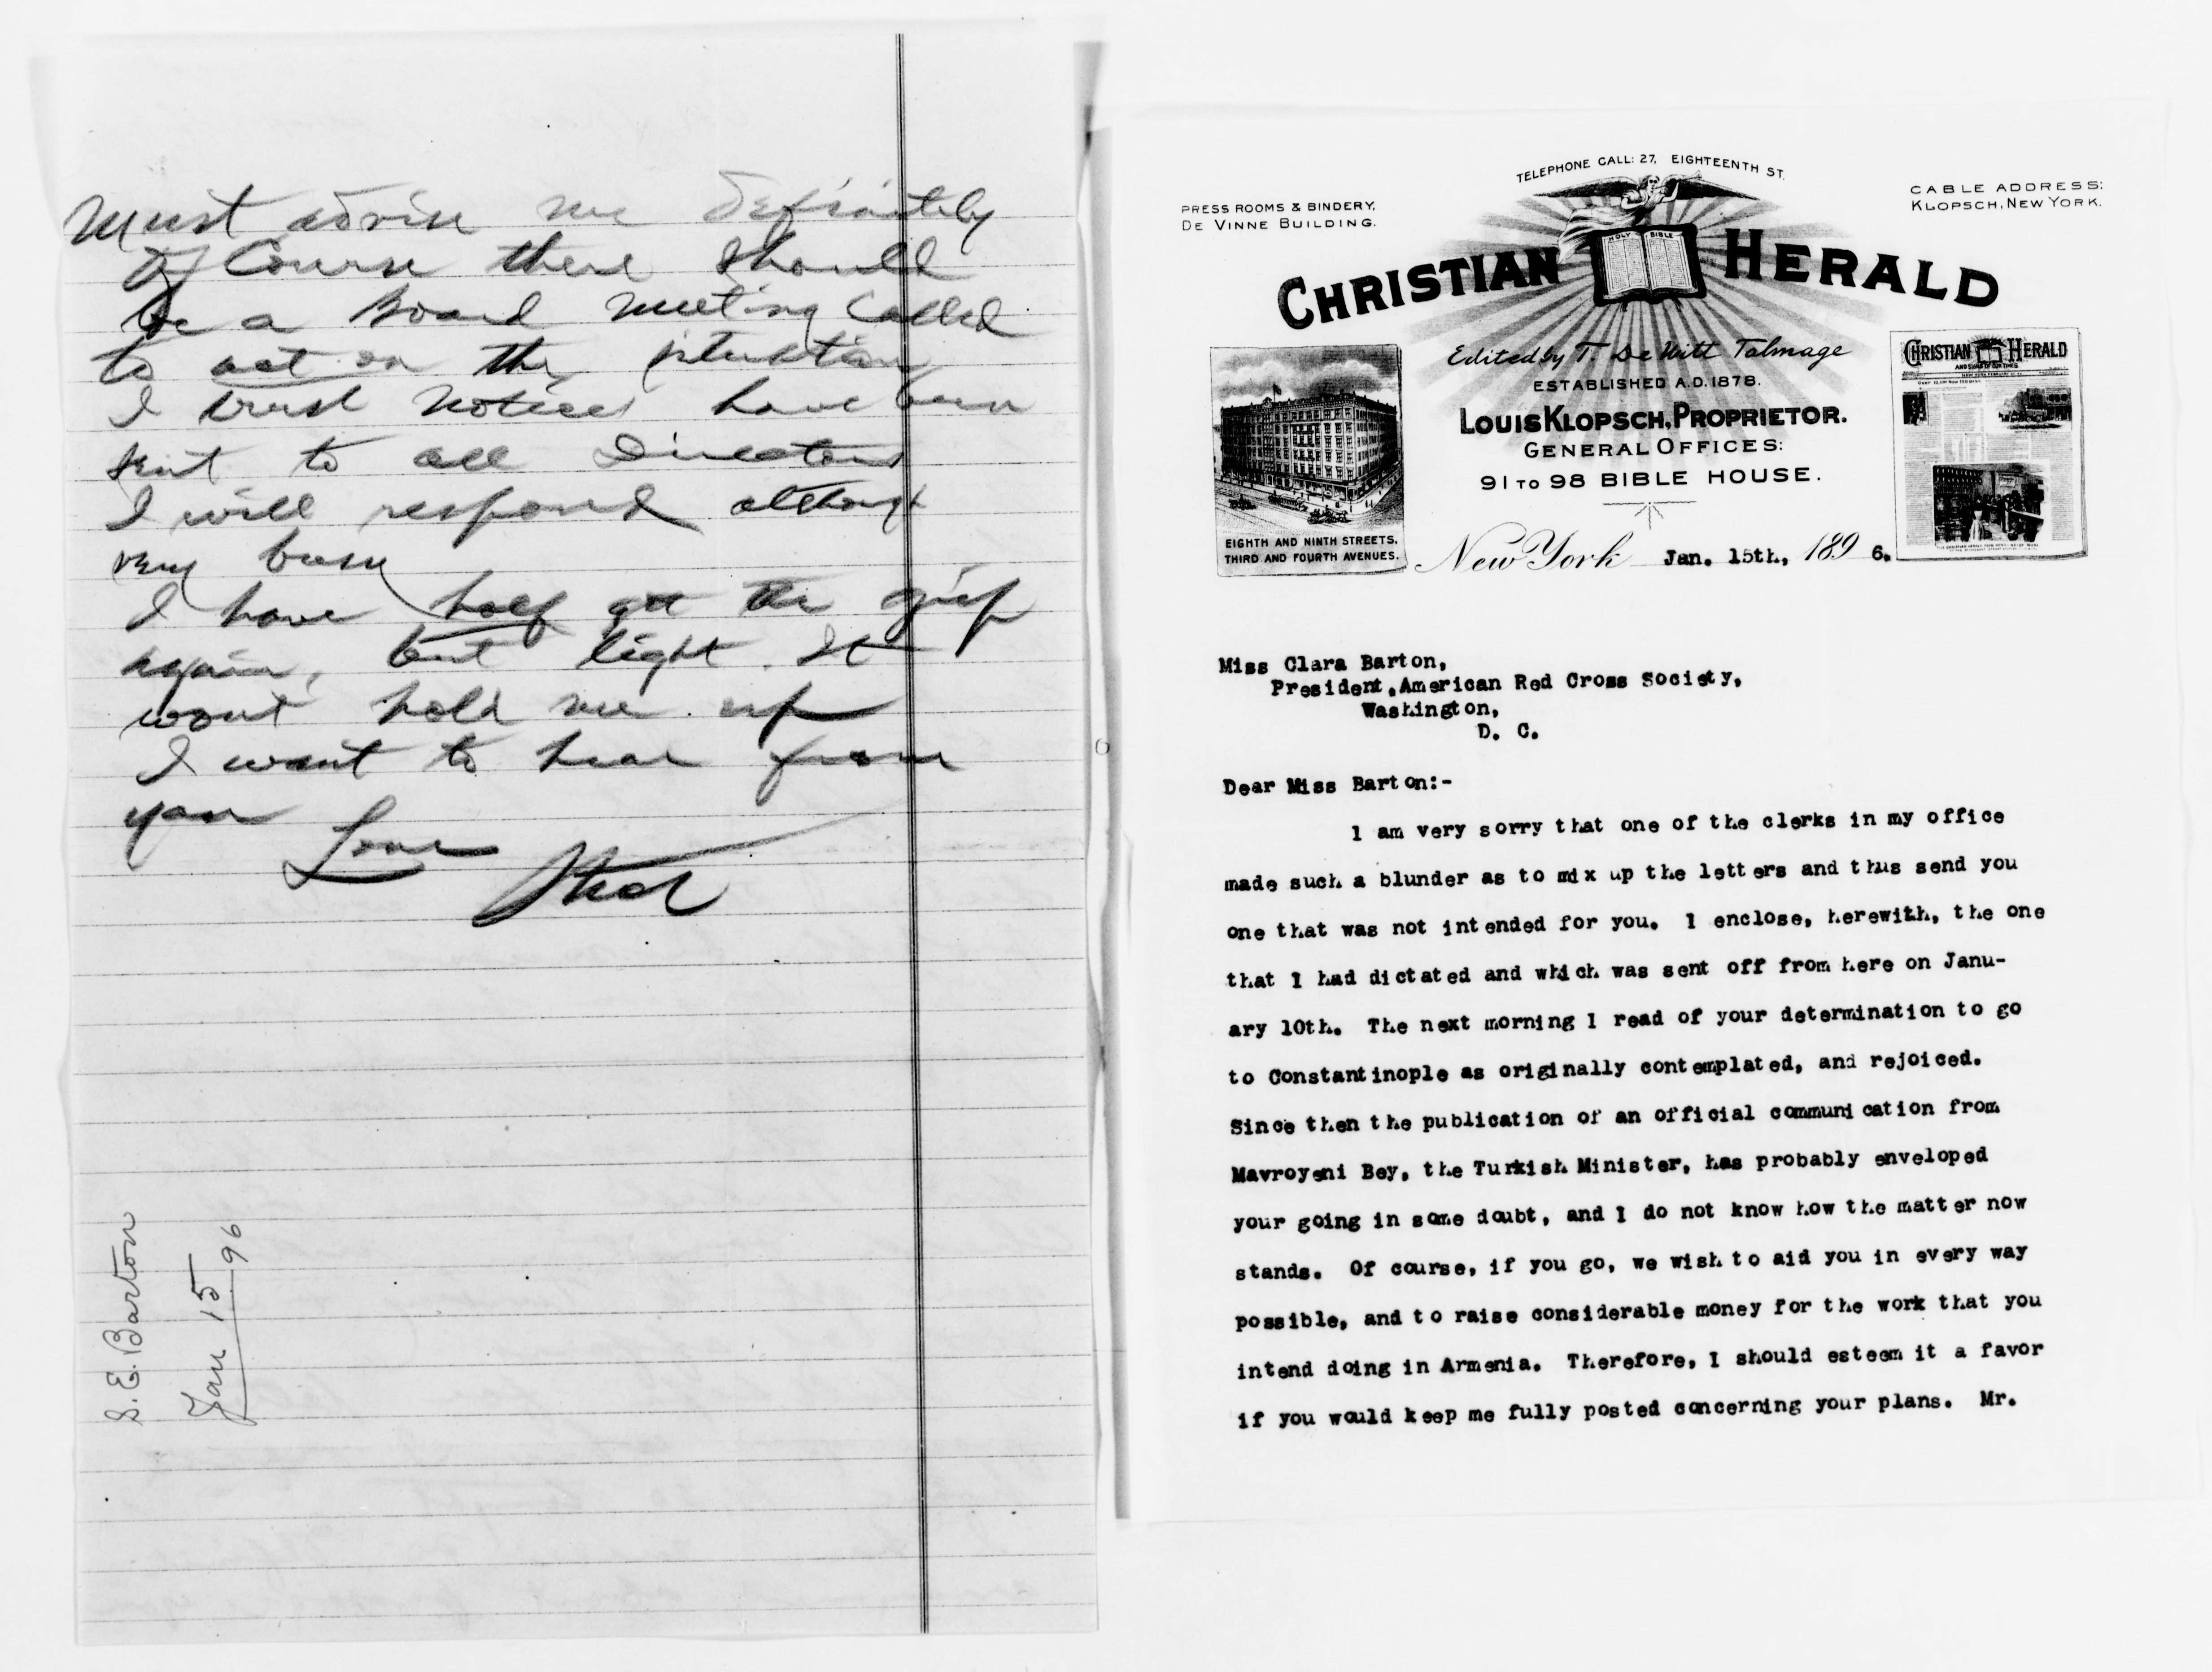 Must advise me definitely
Of Course there should
be a Board meeting called
to act on the situation
I trust notices have been
sent to all Directors
I will respond although
very busy
I have half got the grip
again, but light. It
wont hold me up
I want to hear from
you
Love
Sted
S. E. Barton
Jan 15 96
TELEPHONE CALL: 27, EIGHTEENTH ST.
PRESS ROOMS & BINDERY,
DE VINNE BUILDING.
CABLE ADDRESS:
KLOPSCH, NEW YORK.
HOLY BIBLE
CHRISTIAN HERALD
Edited by T. De Witt Talmage
ESTABLISHED A.D. 1878.
LOUIS KLOPSCH, PROPRIETOR.
GENERAL OFFICES:
91 TO 98 BIBLE HOUSE.
CHRISTIAN HERALD
EIGHTH AND NINTH STREETS,
THIRD AND FOURTH AVENUES.
New York Jan. 15th, 1896.
Miss Clara Barton,
President, American Red Cross Society,
Washington,
D. C.
Dear Miss Barton:-
I am very sorry that one of the clerks in my office
made such a blunder as to mix up the letters and thus send you
one that was not intended for you. I enclose, herewith, the one
that I had dictated and which was sent off from here on Janu-
ary 10th. The next morning I read of your determination to go
to Constantinople as originally contemplated, and rejoiced.
Since then the publication of an official communication from
Mavroyeni Bey, the Turkish Minister, has probably enveloped
your going in some doubt, and I do not know how the matter now
stands. Of course, if you go, we wish to aid you in every way
possible, and to raise considerable money for the work that you
intend doing in Armenia. Therefore, I should esteem it a favor
if you would keep me fully posted concerning your plans. Mr.